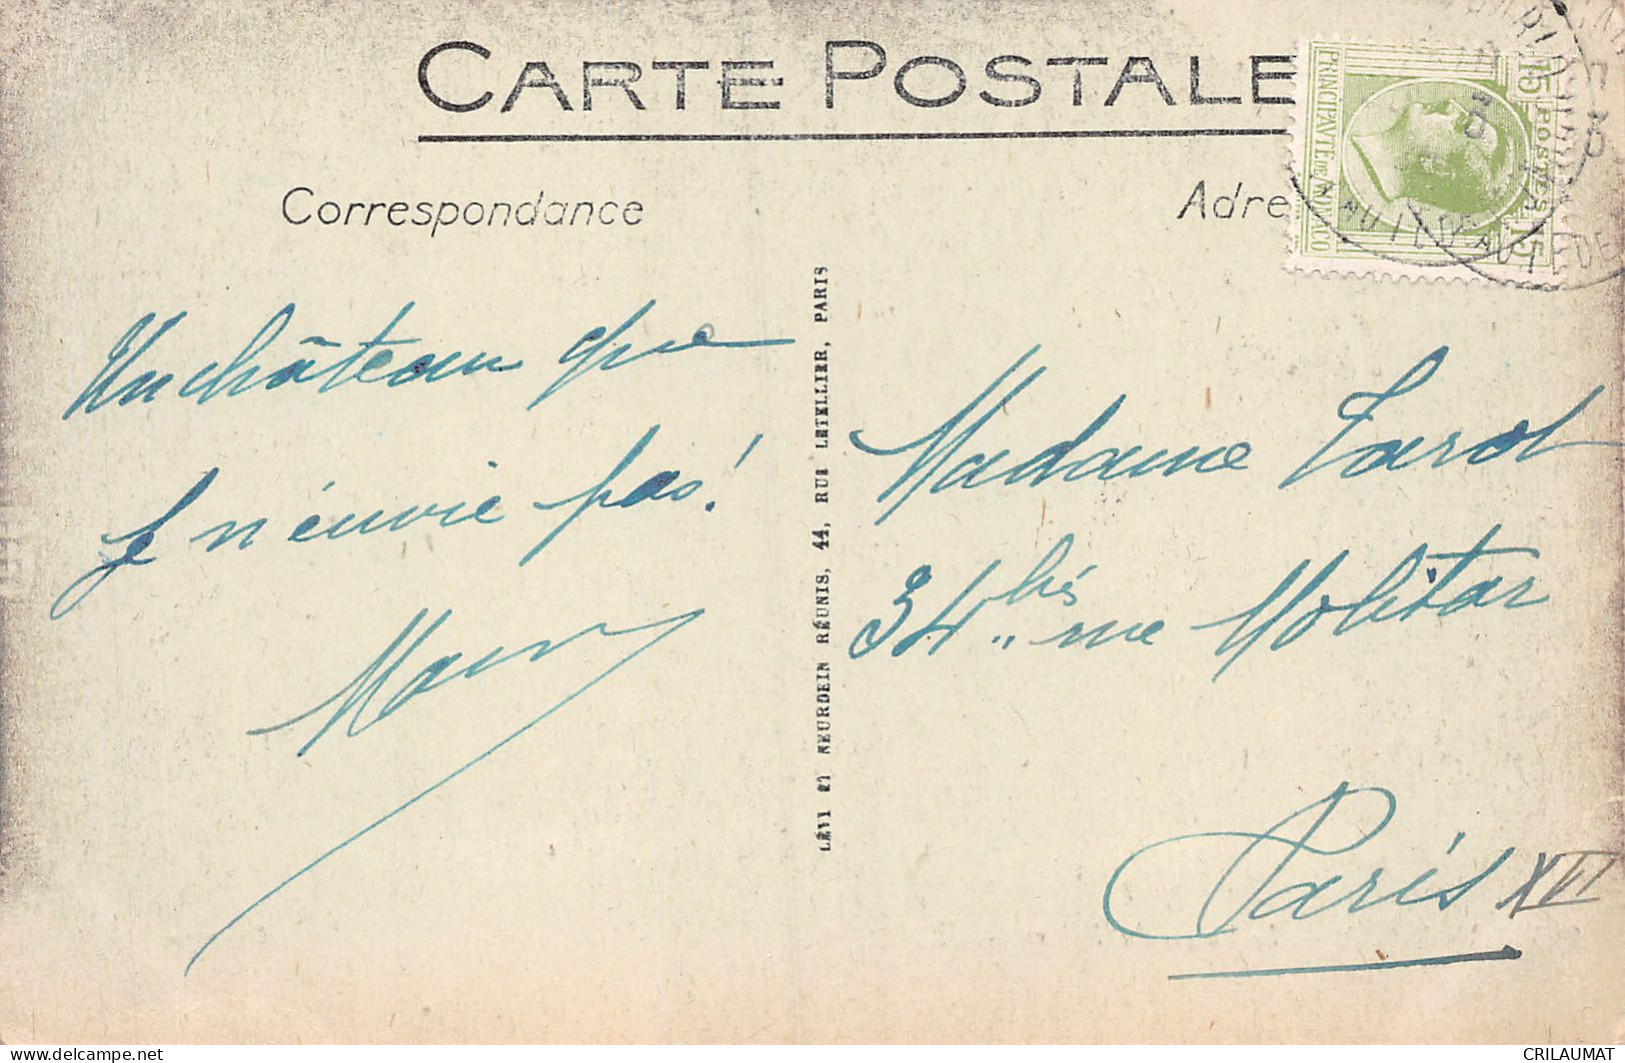 CARTE POSTALE
Correspondance
Adre
PRINCIPAUTÉ DE MONACO
POSTES
15
15
Un château que
je n'envie pas!
LÉVY ET NEURDEIN RÉUNIS, 44, RUE LETELLIER, PARIS
Madame Tarot
34 bis rue Molitar
Paris XVI
CRILAUMAT